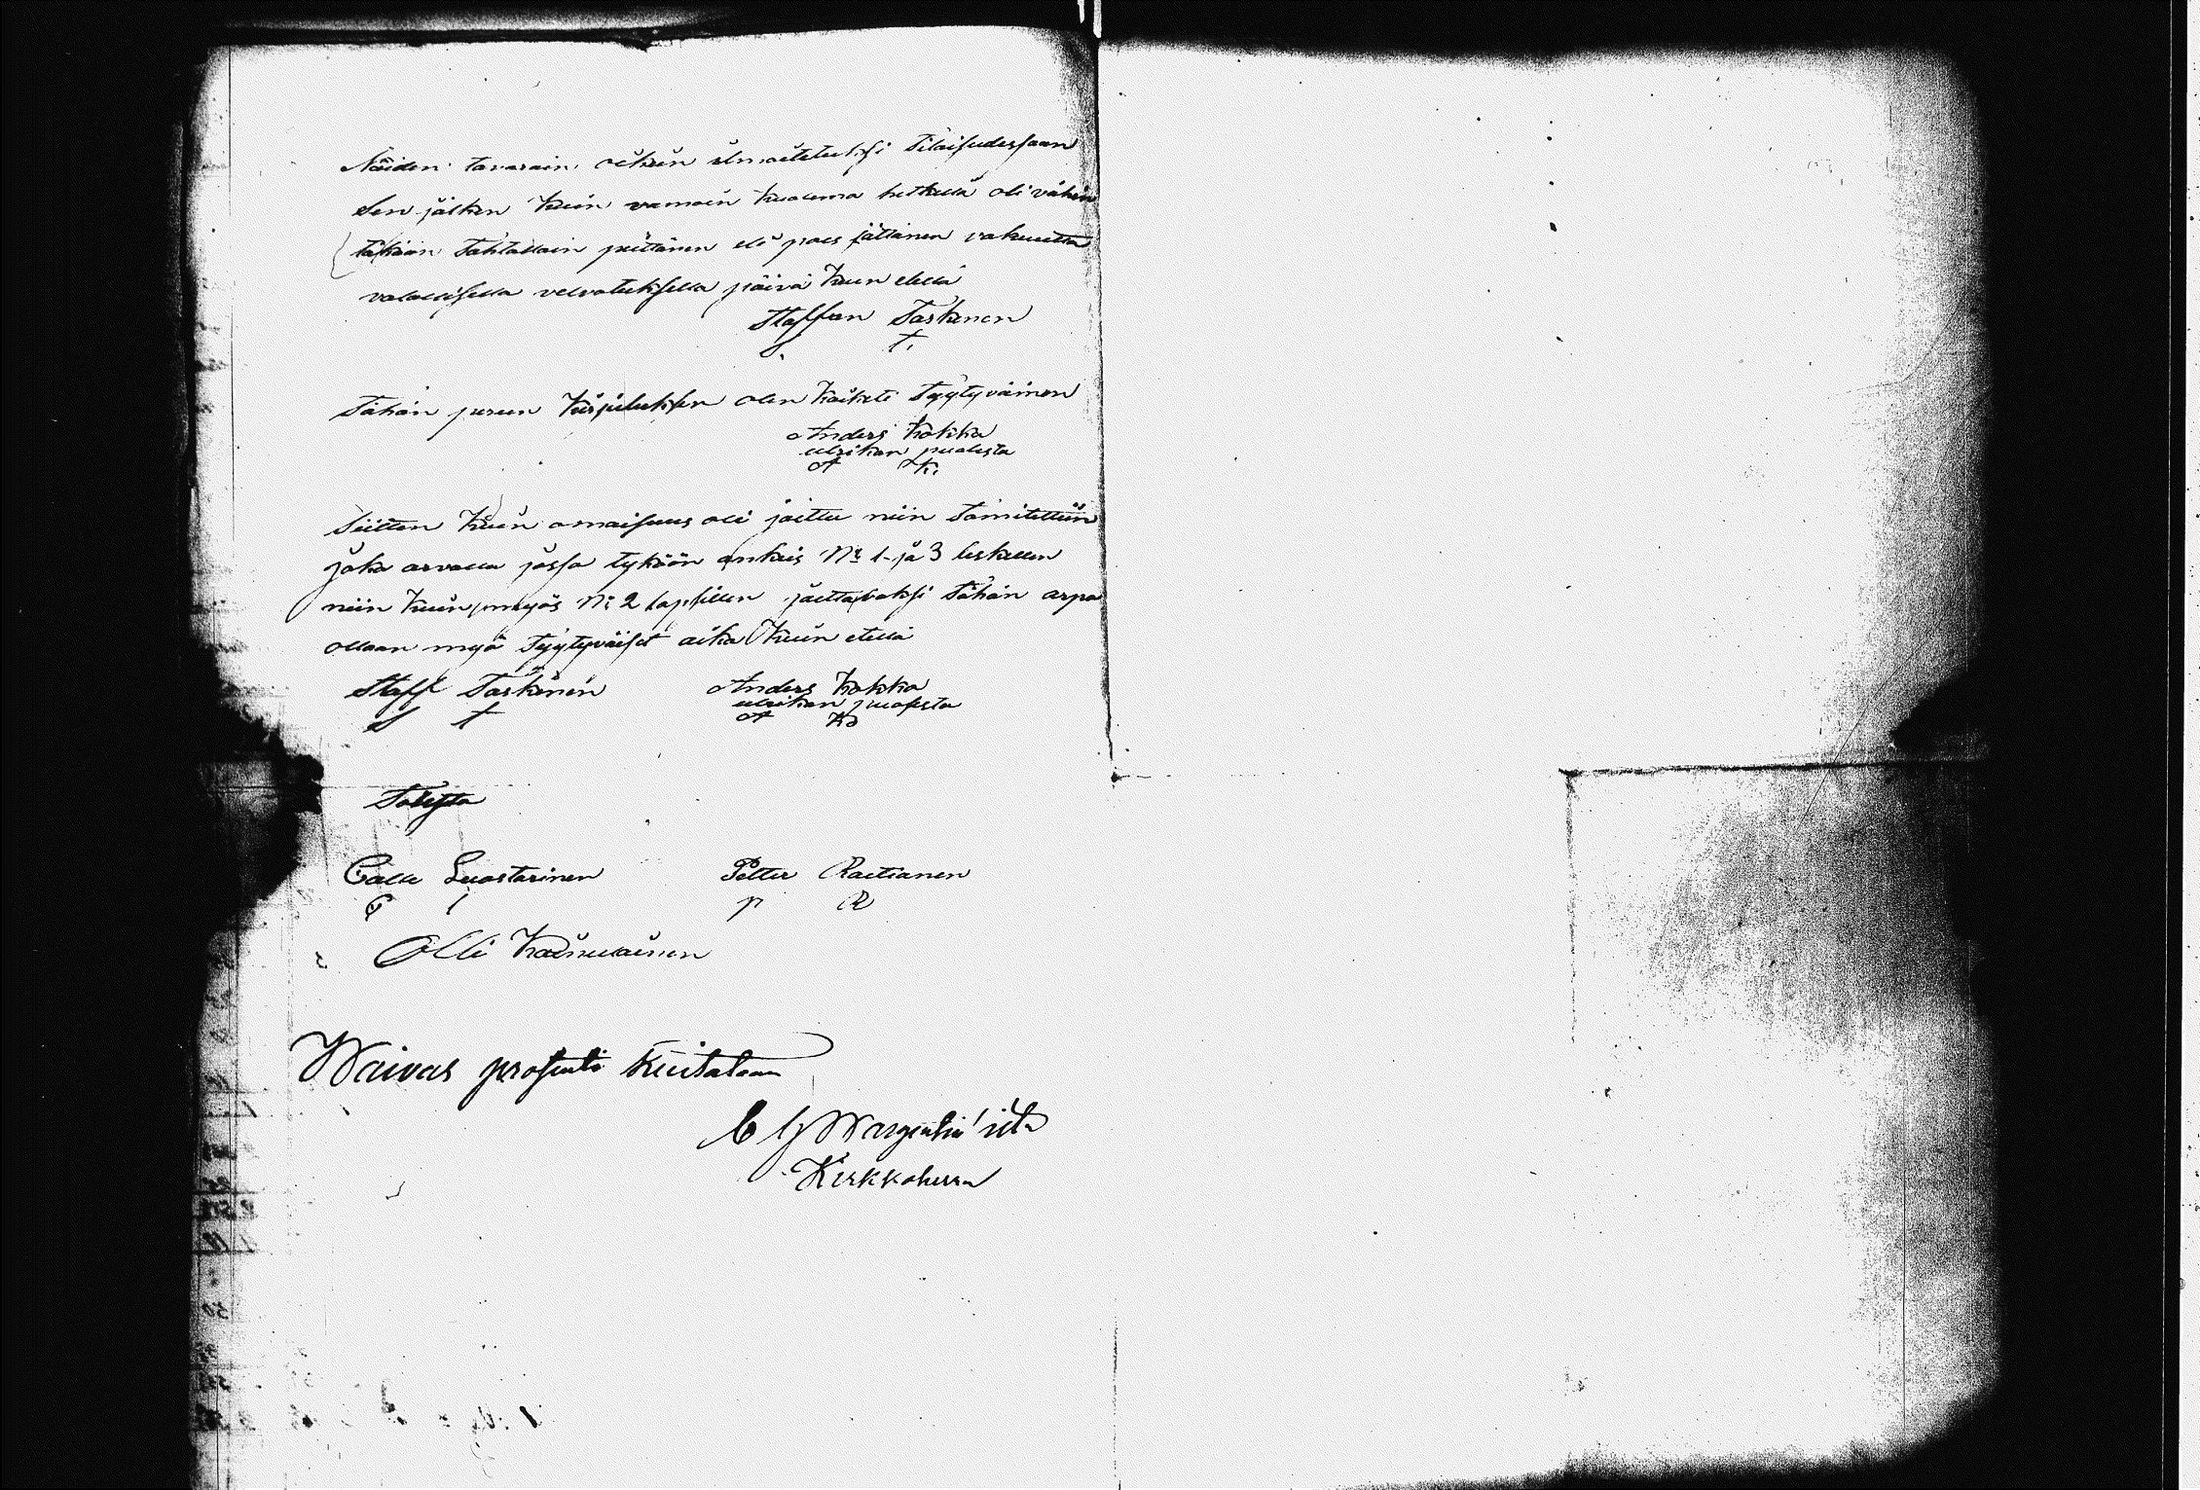 Näiden tavarain oikein ilmoitetuksi tilaisudessaan
Sen jälken kuin vamoin kuolema hetkellä oli vähin
täkään tahtallain peittänen eli pois jättänen vakuutta
valallisella velvotuksella päivä kuun ellä
Staffan Taskinen
S. T.
Tähän perun kirjoituksen olen kaikete Tyytyväinen
Anders Kokka
ulrikan puolesta
A K.
Siitten kuin omaisuus oli jaittu niin toimitettiin
joka arvalla jossa tykään ankeis No 1 ja 3 leskellen
niin kuin myös No 2 lapsillen jaettavaksi tähän arpa
ollaan myö Tyytyväiset aika kuin etellä
Staff Taskinen Anders Kokka
S T ulrikan puolesta
A Ka
Todista
Calle Luostarinen Petter Raetianen
C L P R
Olli Kainulainen
Waivas prosenti Kuitataan
C G Wargentin
Kirkkoherra